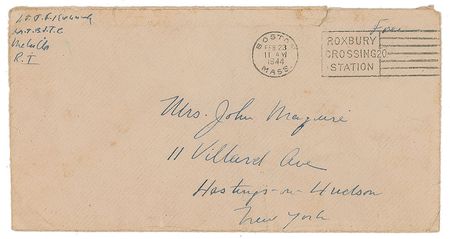 Lt J. F. Kennedy
M.T.B.S.T.C
Melville
R. I
BOSTON
FEB 23
11 AM
1944
MASS.
Free
ROXBURY
CROSSING 20
STATION
Mrs. John Maguire
11 Villard Ave
Hastings-on-Hudson
New York